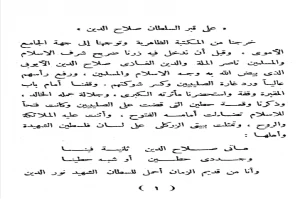 « على قبر السلطان صلاح الدين »
خرجنا من المكتبة الظاهرية وتوجهنا إلى جهة الجامع
الأموي ، وقبل أن ندخل فيه زرنا ضريح شرف الاسلام
والمسلمين ناصر الملة والدين الغازي صلاح الدين الأيوبي
الذي بيض الله به وجه الاسلام والمسلمين ، ورفع رأسهم
عالياً ورد غارة الصليبيين وكسر شوكتهم . وقفنا أمام باب
المقبرة وقفة واستحضرنا مآثره الكبرى ، وجلاله حمله الجلالة .
وذكرنا وقعة حطين التي قضت على الصليبيين وكانت فتحاً
للاسلام تضاءلت أمامه الفتوح . وأنه تنزلت عليه الملائكة
والروح ، وتمثلت ببيتي الزركلي على لسان فلسطين الشهيدة
وأهلها :
هاتي صلاح الدين ثانية فينا
وجددي حطين أو شبه حطينا
وأنا من قديم الزمان أحمل للسلطان الشهيد نور الدين
( ١ )